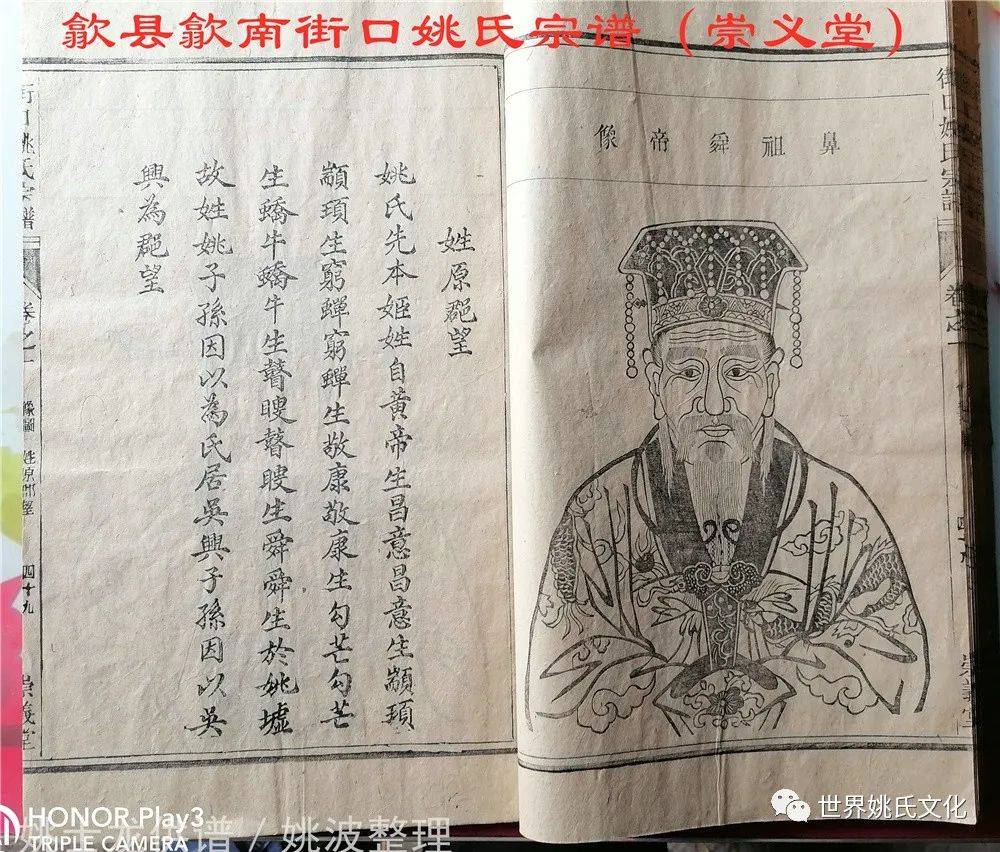 歙县歙南街口姚氏宗谱（崇义堂）
街口姚氏宗譜
卷之一
崇義堂
鼻祖舜帝像
姓原郡望
姚氏先本姬姓自黃帝生昌意昌意生顓頊
顓頊生窮蟬窮蟬生敬康敬康生勾芒勾芒
生蟜牛蟜牛生瞽瞍瞽瞍生舜舜生於姚墟
故姓姚子孫因以為氏居吳興子孫因以吳
興為郡望
街口姚氏宗譜
卷之一
像圖 姓原郡望
四十九
崇義堂
世界姚氏文化
HONOR Play3
TRIPLE CAMERA
姚波整理